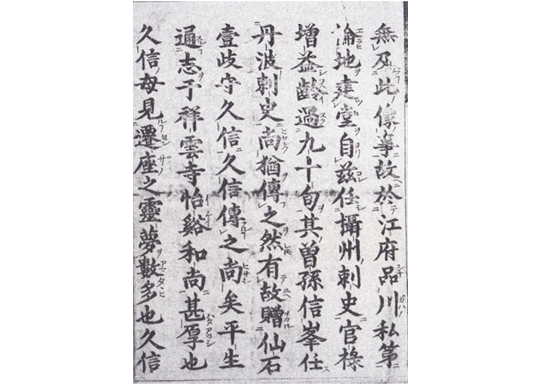 無及此像事故於江府品川私第
淪地建堂自兹任攝州刺史官祿
增益齡過九十旬其曽孫信峯任
丹波刺史尚猶傳之然有故贈仙石
壹岐守久信久信傳之尚矣平生
通志于祥雲寺怡谿和尚甚厚也
久信每見遷座之靈夢數多也久信